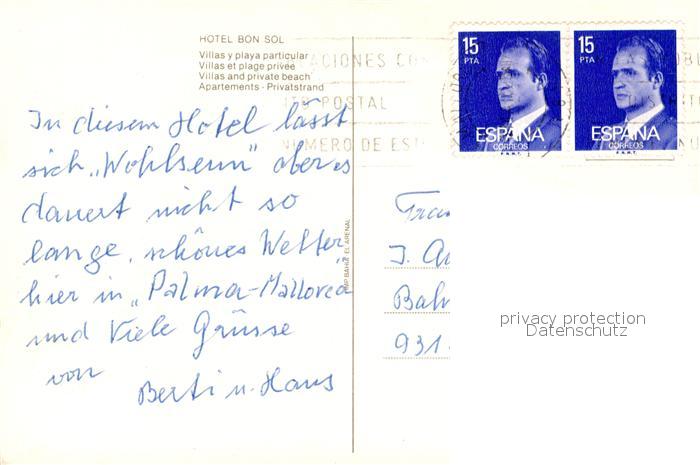 HOTEL BON SOL
Villas y playa particular
Villas et plage privée
Villas and private beach
Apartements - Privatstrand
In diesem Hotel lässt
sich „Wohlsein" aber es
dauert nicht so
lange, schönes Wetter
hier in „Palma-Mallorca
und Viele Grüsse
von
Berti u. Hans
BAHIA EL ARENAL
15
PTA
ESPAÑA
CORREOS
F.N.M.T.
15
PTA
ESPAÑA
CORREOS
F.N.M.T.
POSTAL
NUMERO DE
J.
931
privacy protection
Datenschutz